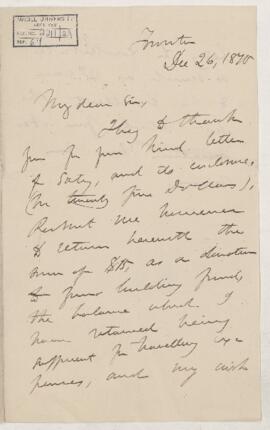 Toronto
Dec 26, 1870
My dear Sir,
I beg to thank
you for your kind letter
of Saty, and its enclosure,
(for twenty five Dollars),
Permit me however
to return herewith the
sum of $15, as a donation
to your building fund,
the balance which I
have retained being
sufficient for travelling ex-
penses, and my wish